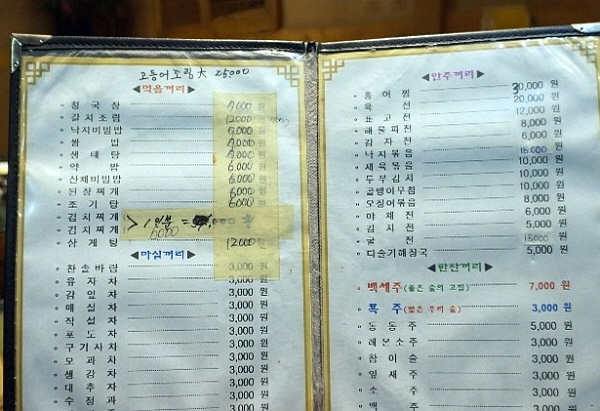 고등어조림 大 25000
◀먹을꺼리▶
청국장 7000 원
갈치조림 12000
낙지비빔밥 6000 원
쌈밥 원
생태탕 원
약밥 6000 원
산채비빔밥 6000 원
된장찌개 6000 원
조기탕 6000 원
김치찌개
김치찌개
> 1인분 =
6000
삼계탕 12000
◀마실꺼리▶
찬솔바람 3,000 원
유자차 3,000 원
감잎차 3,000 원
매실차 3,000 원
작설차 3,000 원
포도차 3,000 원
구기자차 3,000 원
모과차 3,000 원
생강차 3,000 원
대추차 3,000 원
수정과 3,000 원
◀안주꺼리▶
홍어찜 30,000 원
육전 20,000 원
표고전 12,000 원
해물파전 8,000 원
감자전 6,000 원
낙지볶음 원
제육볶음 10,000 원
두부김치 10,000 원
골뱅이무침 10,000 원
오징어볶음 10,000 원
야채전 6,000 원
김치전 5,000 원
굴전 15000 원
다슬기해장국 5,000 원
◀한잔꺼리▶
백세주(좋은 술의 고집) 7,000 원
흑주 3,000 원
동동주 5,000 원
레몬소주 3,000 원
참이슬 3,000 원
잎새주 3,000 원
소주 3,000 원
맥주 3,000 원